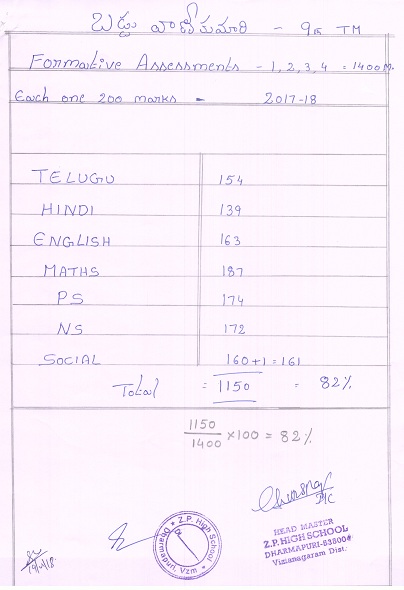 బడ్డు వాణీకుమారి - 9th TM
Formative Assessments - 1, 2, 3, 4 = 1400 M.
Each one 200 marks - 2017-18
TELUGU 154
HINDI 139
ENGLISH 163
MATHS 187
PS 174
NS 172
SOCIAL 160+1 = 161
Total = 1150 = 82%
1150/1400 ×100 = 82%
Z.P. High School
Dharmapuri, Vzm
HEAD MASTER
Z.P.HIGH SCHOOL
DHARMAPURI-53500
Vizianagaram Dist.